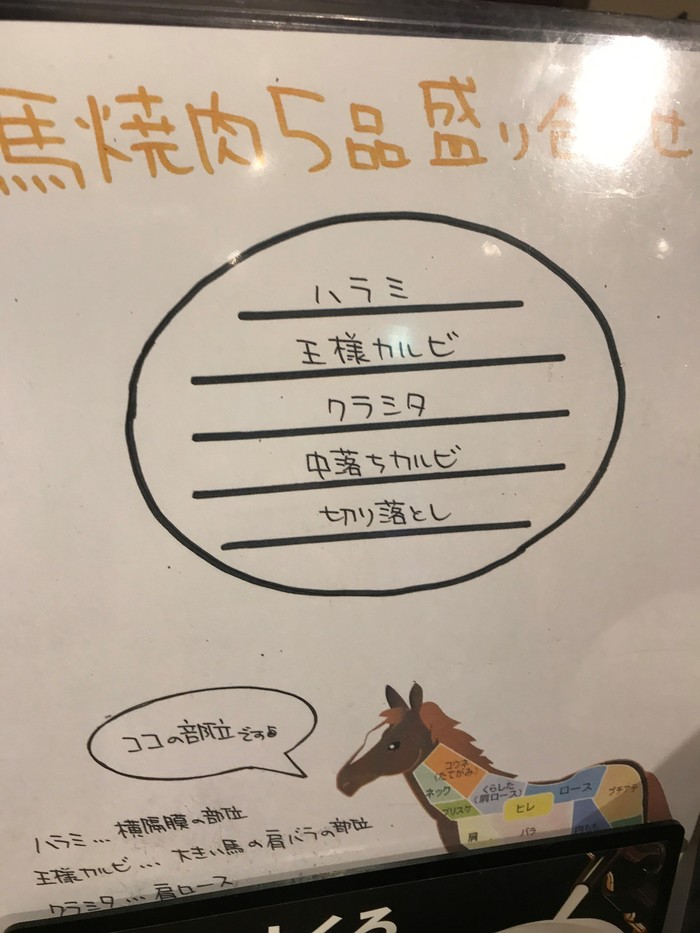 馬焼肉5品盛り合せ
ハラミ
王様カルビ
クラシタ
中落ちカルビ
切り落とし
ココの部位ですよ
コウネ
(たてがみ)
ネック
くらした
(肩ロース)
ロース
ブリスケ
ヒレ
肩
バラ
ハラミ…横隔膜の部位
王様カルビ…大きい馬の肩バラの部位
クラシタ…肩ロース